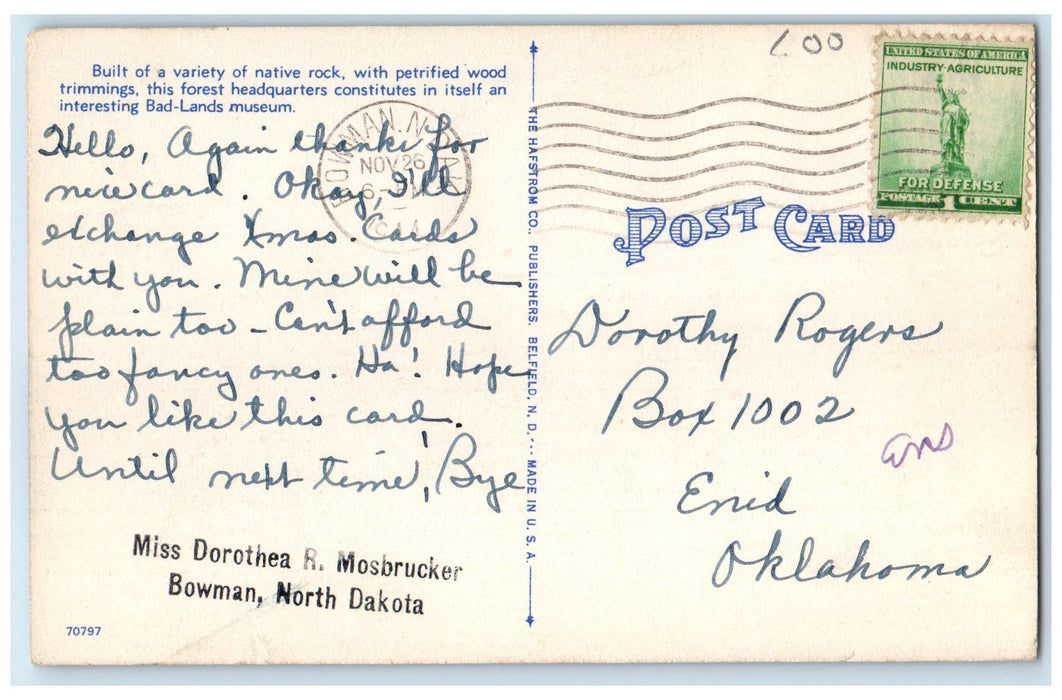 Built of a variety of native rock, with petrified wood
trimmings, this forest headquarters constitutes in itself an
interesting Bad-Lands museum.
Hello, Again thanks for
nice card. Okay, I'll
exchange Xmas. Cards
with you. Mine will be
plain too - Can't afford
too fancy ones. Ha! Hope
you like this card.
Until next time, Bye
Miss Dorothea R. Mosbrucker
Bowman, North Dakota
70797
THE HAFSTROM CO., PUBLISHERS. BELFIELD, N. D.--- MADE IN U. S. A.
BOWMAN. N. DAK
NOV 26
6
UNITED STATES OF AMERICA
INDUSTRY-AGRICULTURE
FOR DEFENSE
POSTAGE 1 CENT
POST CARD
Dorothy Rogers
Box 1002
ans
Enid
Oklahoma